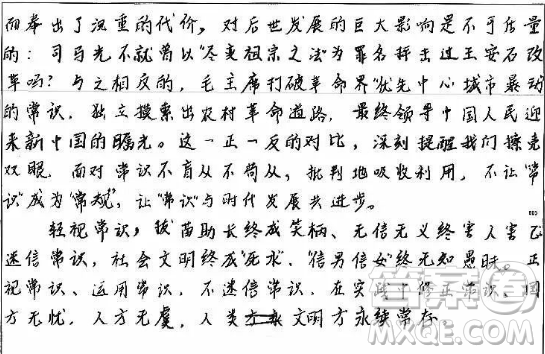 而牵出了沉重的代价，对后世发展的巨大影响是不可估量
的：司马光不就曾以“尽变祖宗之法”为罪名抨击过王安石改
革吗？与之相反的，毛主席打破革命界“优先中心城市暴动”
的常识，独立摸索出农村革命道路，最终领导中国人民迎
来新中国的曙光。这一正一反的对比，深刻提醒我们擦亮
双眼，面对常识不盲从不苟从，批判地吸收利用，不让“常
识”成为“常规”，让“常识”与时代发展共进步。
轻视常识，拔苗助长终成笑柄、无信无义终害人害己
迷信常识，社会文明终成“死水”、“信男信女”终无知愚昧。正
视常识、运用常识，不迷信常识，在实践上修正常识，国
方无忧，人方无虞，人类文明方永续常存。